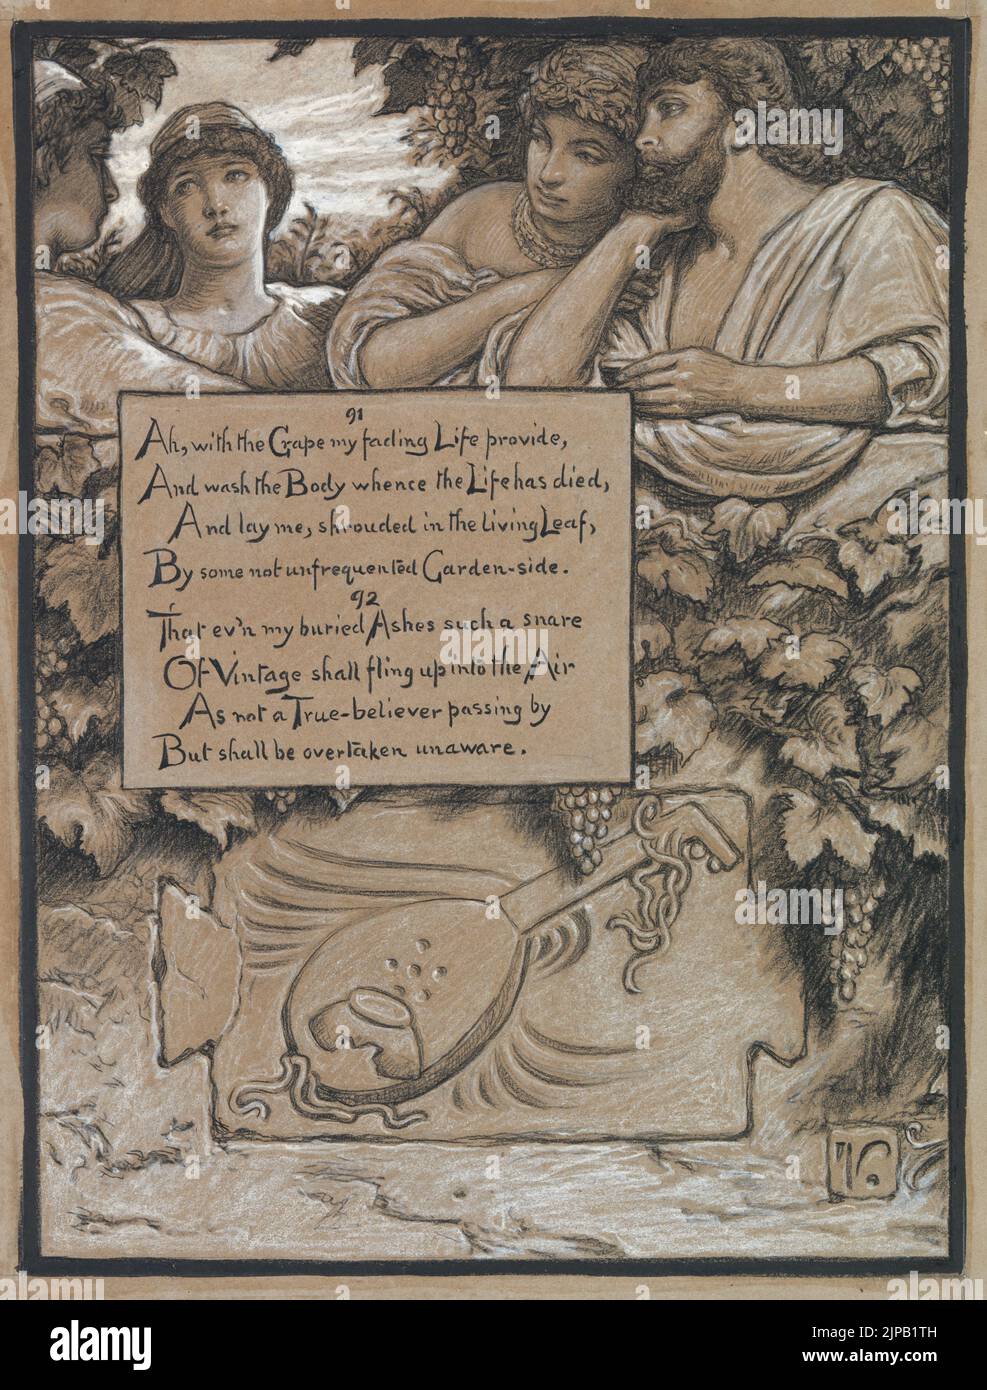 91
Ah, with the Grape my fading Life provide,
And wash the Body whence the Life has died,
And lay me, shrouded in the living Leaf,
By some not unfrequented Garden-side.
92
That ev'n my buried Ashes such a snare
Of Vintage shall fling up into the Air
As not a True-believer passing by
But shall be overtaken unaware.
V
alamy
Image ID: 2JPB1TH
www.alamy.com